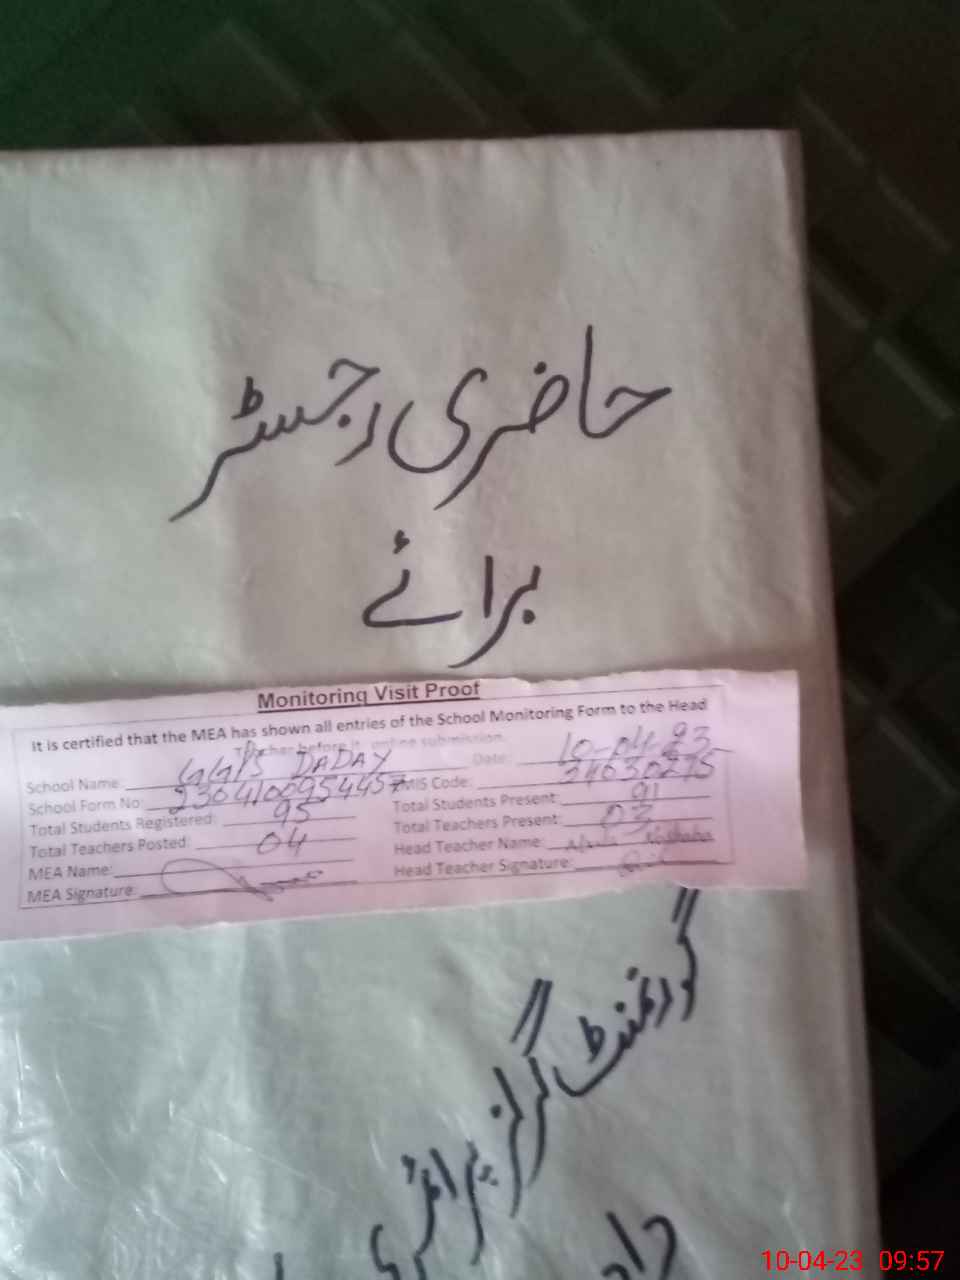 حاضری رجسٹر
برائے
Monitoring Visit Proof
It is certified that the MEA has shown all entries of the School Monitoring Form to the Head
Teacher before it online submission.
School Name: GGPS DADAY Date: 10-04-23
School Form No: 230410095445 EMIS Code: 24030275
Total Students Registered: 95 Total Students Present: 91
Total Teachers Posted: 04 Total Teachers Present: 03
MEA Name: Head Teacher Name:
MEA Signature: Head Teacher Signature:
گورنمنٹ گرلز پرائمری
10-04-23 09:57